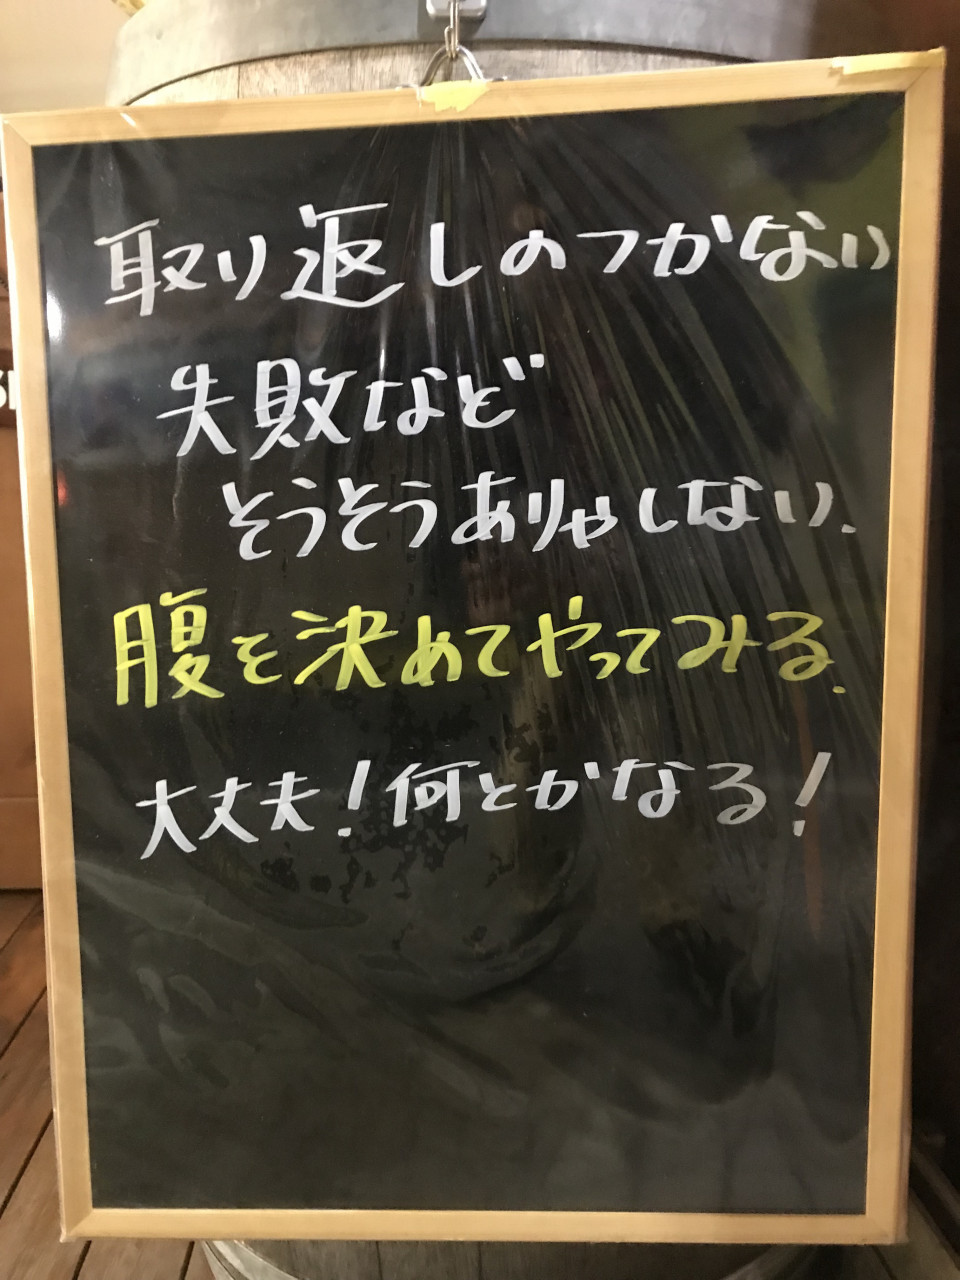 取り返しのつかない
失敗など
そうそうありゃしない.
腹を決めてやってみる.
大丈夫!何とかなる!